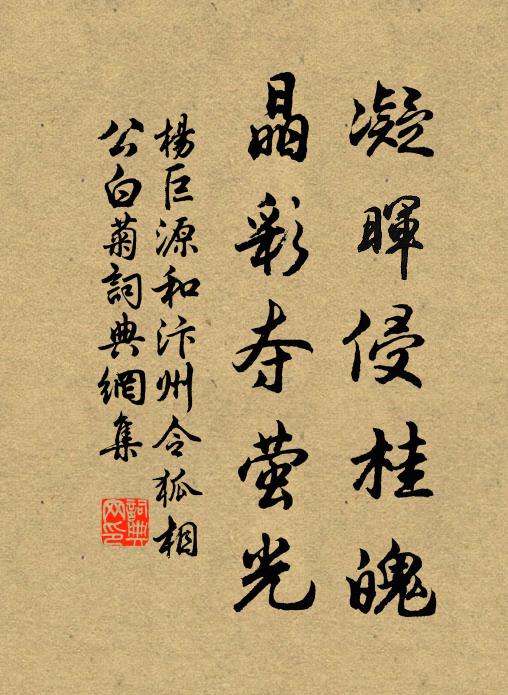 凝暉侵桂魄
晶彩夺萤光
楊巨源和汴州令狐相
公白菊詞典網集
詞典
网印